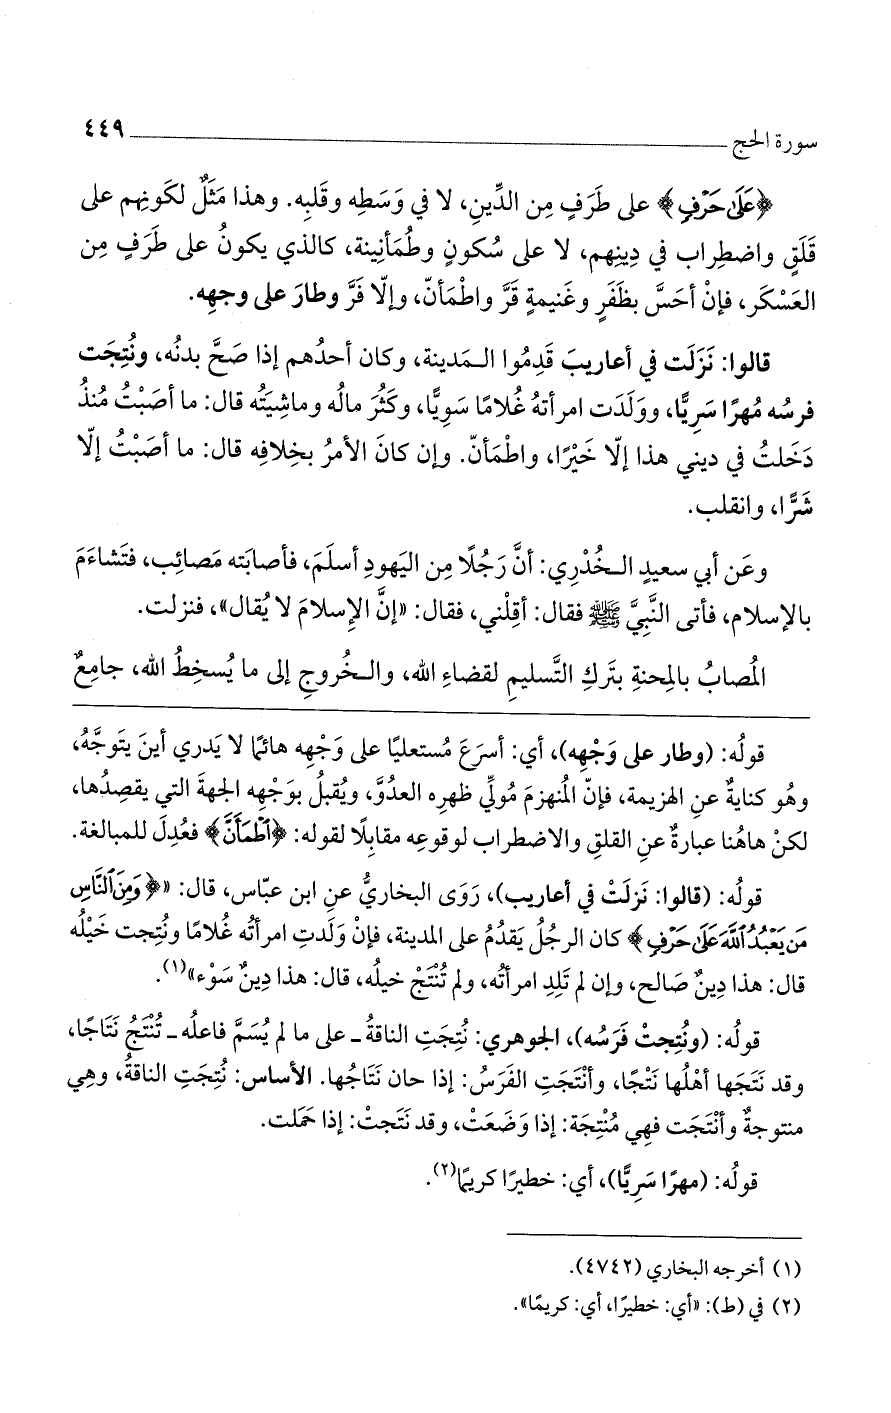 سورة الحج ٤٤٩
﴿عَلَىٰ حَرْفٍ﴾ على طَرَفٍ مِن الدِّينِ، لا في وَسَطِه وقَلبِه. وهذا مَثَلٌ لكَونِهم على
قَلَقٍ واضطِراب في دِينِهم، لا على سُكونٍ وطُمَأنِينة، كالذي يكونُ على طَرَفٍ مِن
العَسْكَر، فإنْ أحَسَّ بظَفَرٍ وغَنيمةٍ قَرَّ واطْمَأنّ، وإلّا فَرَّ وطارَ على وجهِه.
قالوا: نَزَلَت في أعاريبَ قَدِمُوا الـمَدينة، وكان أحدُهم إذا صَحَّ بدنُه، ونُتِجَت
فرسُه مُهرًا سَرِيًّا، ووَلَدَت امرأتهُ غُلامًا سَوِيًّا، وكَثُرَ مالُه وماشِيَتُه قال: ما أصَبْتُ مُنذُ
دَخَلتُ في ديني هذا إلّا خَيْرًا، واطْمَأنّ. وإن كانَ الأمرُ بخِلافِه قال: ما أصَبْتُ إلّا
شَرًّا، وانقلب.
وعَن أبي سعيدٍ الـخُدْرِي: أنَّ رَجُلًا مِن اليَهودِ أسلَمَ، فأصابَته مَصائِب، فتَشاءَمَ
بالإسلام، فأتى النَّبِيَّ ﷺ فقال: أقِلْني، فقال: «إنَّ الإسلامَ لا يُقال»، فنزلت.
المُصابُ بالمِحنةِ بتَركِ التَّسليمِ لقضاءِ الله، والـخُروجِ إلى ما يُسخِطُ الله، جامِعٌ
قولُه: (وطار على وَجْهِه)، أي: أسرَعَ مُستعليًا على وَجْهِه هائمًا لا يَدري أينَ يَتوجَّهُ،
وهُو كنايةٌ عنِ الهزيمة، فإنّ المُنهزمَ مُولِّي ظهرِه العدوَّ، ويُقبلُ بوَجْهِه الجهةَ التي يقصِدُها،
لكنْ هاهُنا عبارةٌ عنِ القلقِ والاضطراب لوقوعِه مقابلًا لقوله: ﴿ٱطْمَأَنَّ﴾ فعُدِلَ للمبالغة.
قولُه: (قالوا: نَزلَتْ في أعاريب)، رَوَى البخاريُّ عنِ ابن عبّاس، قال: «﴿وَمِنَ ٱلنَّاسِ
مَن يَعْبُدُ ٱللَّهَ عَلَىٰ حَرْفٍ﴾ كان الرجلُ يَقدُمُ على المدينة، فإنْ وَلَدتِ امرأتُه غُلامًا ونُتِجت خَيْلُه
قال: هذا دِينٌ صَالح، وإن لم تَلِدِ امرأتُه، ولم تُنْتَجْ خيلُه، قال: هذا دِينٌ سَوْء»(١).
قولُه: (ونُتِجتْ فَرَسُه)، الجوهري: نُتِجَتِ الناقةُ ـ على ما لم يُسَمَّ فاعلُه ـ تُنْتَجُ نَتَاجًا،
وقد نَتَجَها أهْلُها نَتْجًا، وأنْتَجَتِ الفَرَسُ: إذا حان نَتَاجُها. الأساس: نُتِجَتِ الناقةُ، وهِي
منتوجةٌ وأنْتَجَت فهِي مُنْتِجَة: إذا وَضَعَتْ، وقد نَتَجتْ: إذا حَمَلت.
قولُه: (مهرًا سَرِيًّا)، أي: خطيرًا كريمًا(٢).
(١) أخرجه البخاري (٤٧٤٢).
(٢) في (ط): «أي: خطيرًا، أي: كريمًا».